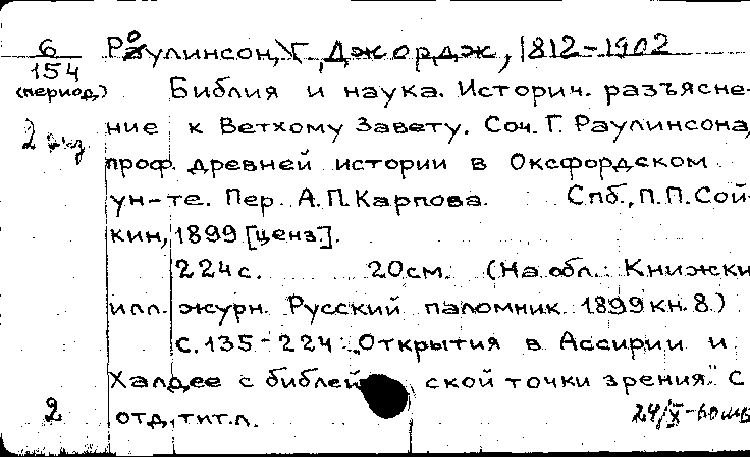 6
154
(период.)
2 экз
Роулинсон, Г Джордж, 1812-1902
Библия и наука. Историч. разъясне-
ние к Ветхому Завету. Соч. Г. Раулинсона,
проф. древней истории в Оксфордском
ун-те. Пер. А.П.Карпова. Спб., П.П.Сой-
кин, 1899 [ценз.].
224 с. 20см. (На обл.: Книжки
илл. журн. Русский паломник 1899 кн. 8.)
С. 135-224: "Открытия в Ассирии и
Халдее с библейской точки зрения." С
отд. тит. л.
2
24/X-